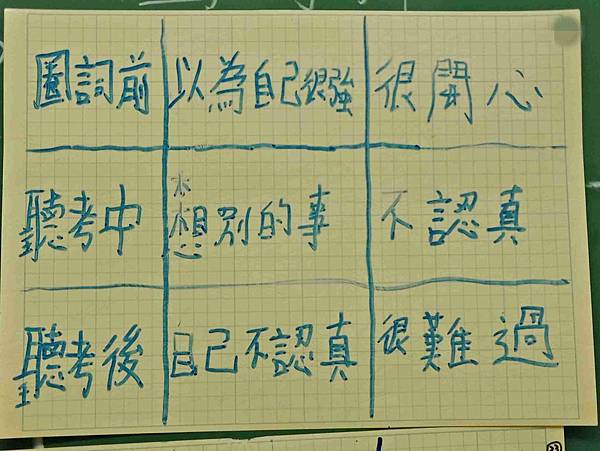 圈詞前 以為自己很強 很開心
聽考中 想別的事 不認真
聽考後 自己不認真 很難過
23